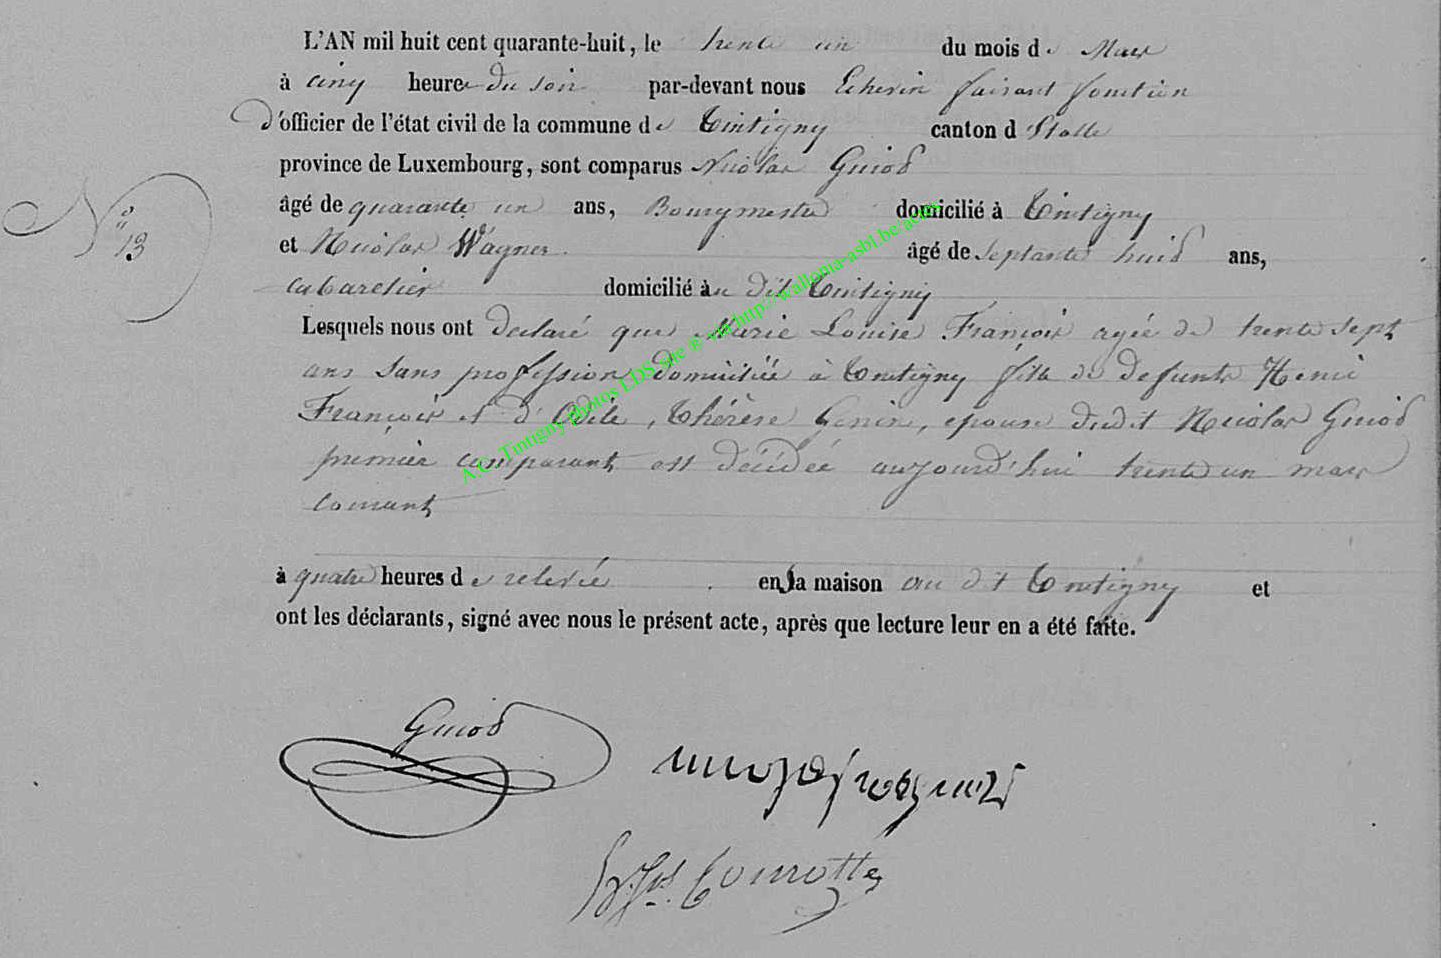 L'AN mil huit cent quarante-huit, le trente un du mois de Mars
à cinq heures du soir par-devant nous Echevin faisant fonction
d'officier de l'état civil de la commune de Tintigny canton d'Etalle
province de Luxembourg, sont comparus Nicolas Guiod
N° 13
âgé de quarante un ans, Bourgmestre domicilié à Tintigny
et Nicolas Wagner âgé de septante huid ans,
cabaretier domicilié à au dit Tintigny
Lesquels nous ont declaré que Marie Louise François agée de trente sept
ans sans profession domiciliée à Tintigny fille de defunts Henri
François et d'Odile, Thérèse Genin, epouse dudit Nicolas Guiod
premier comparant est décédée aujourd'hui trente un mars
courant
à quatre heures de relevée en sa maison au dit Tintigny et
ont les déclarants, signé avec nous le présent acte, après que lecture leur en a été faite.
A.C. Tintigny photos EDS site ® via http://wallonia-asbl.be/actes
Guiod